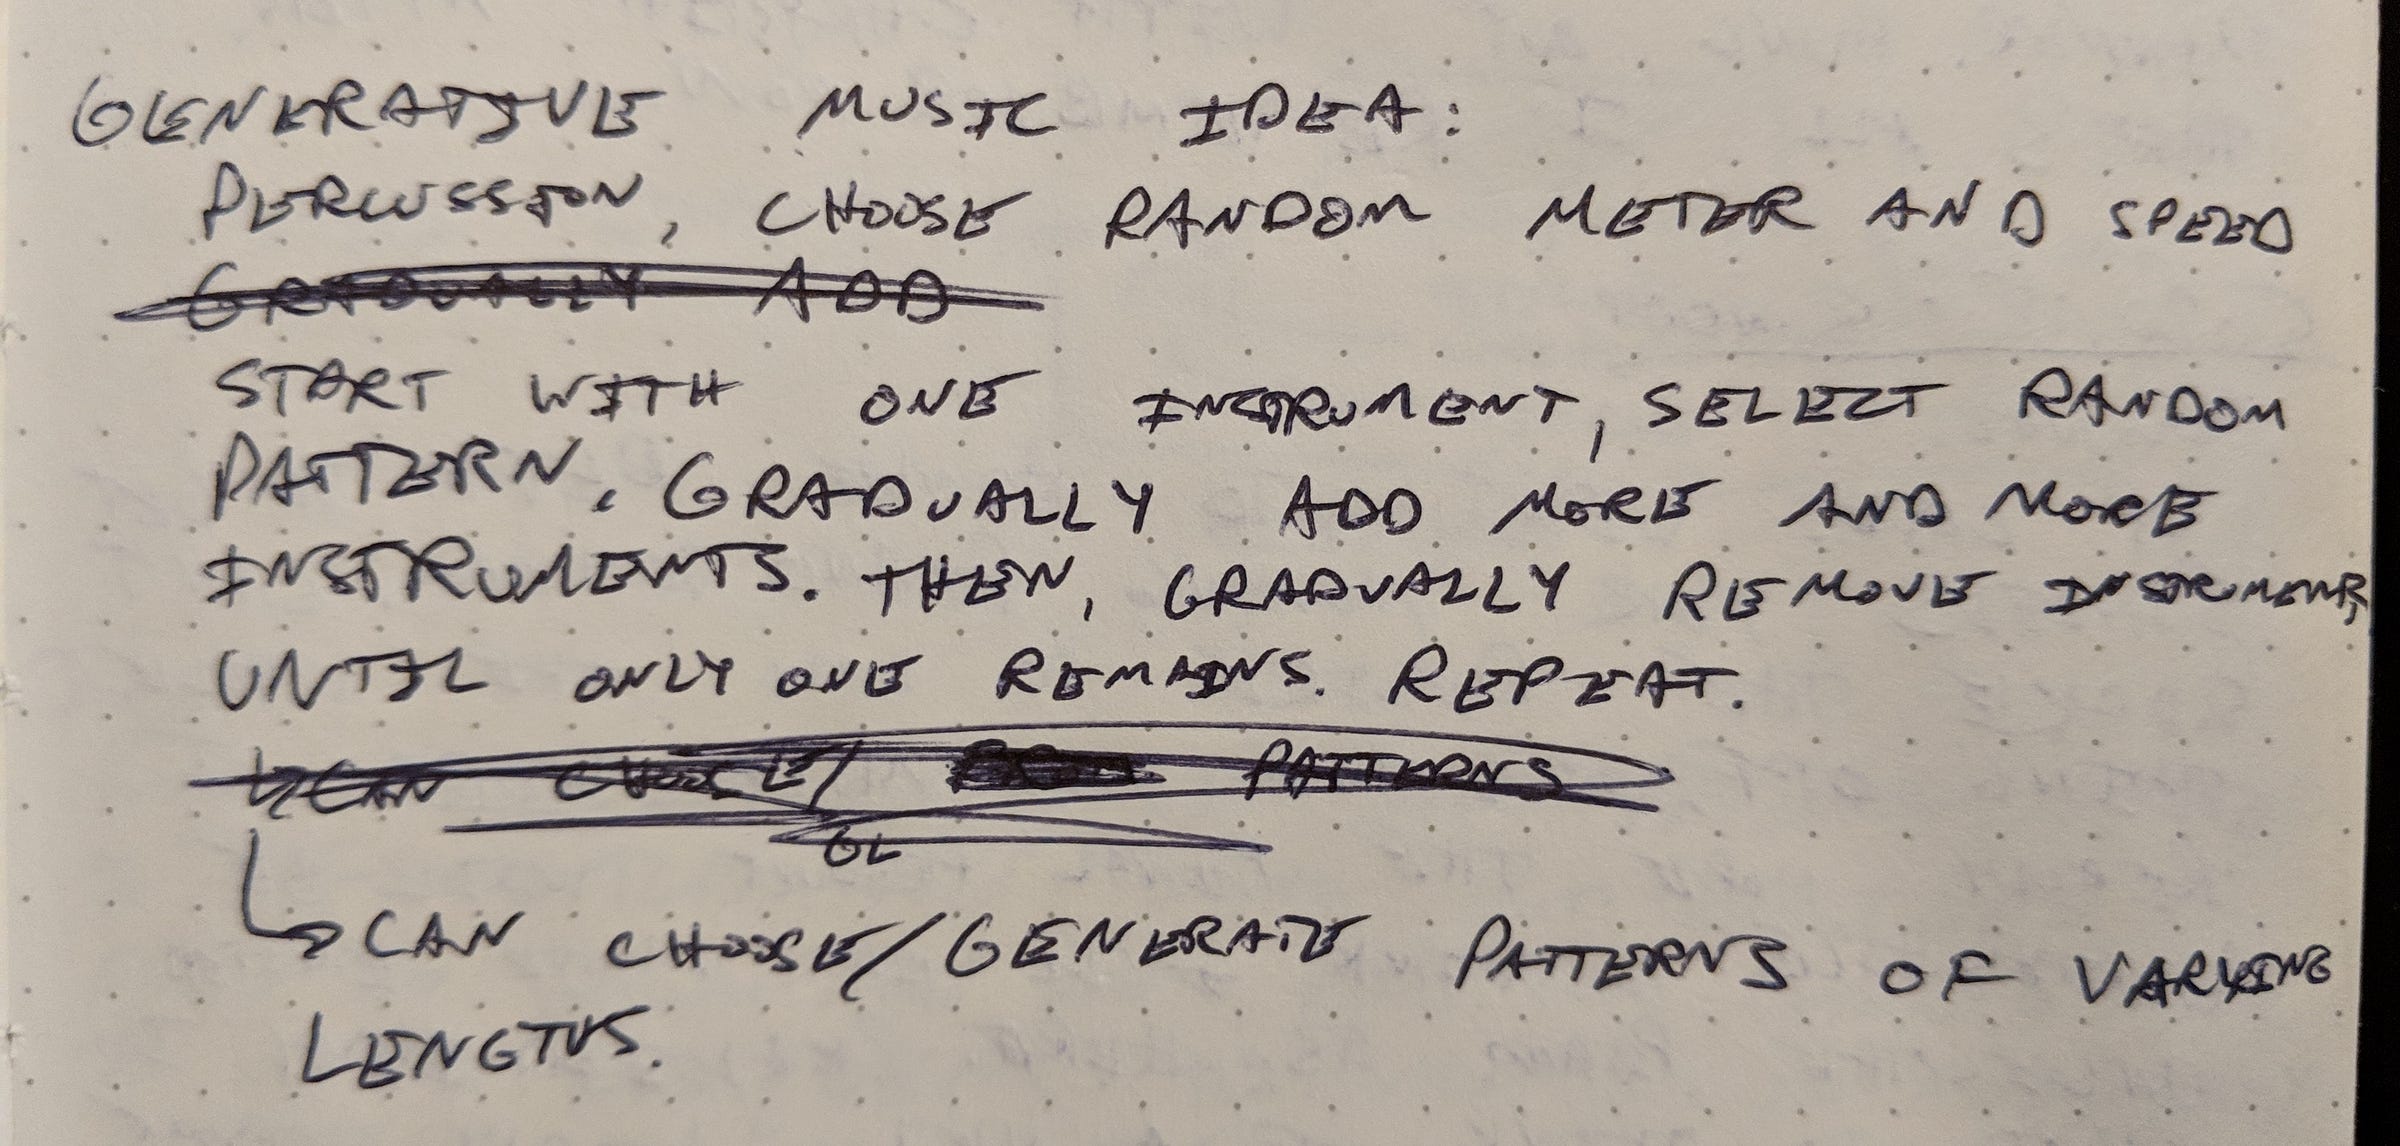 GENERATIVE MUSIC IDEA:
PERCUSSION, CHOOSE RANDOM METER AND SPEED
GRADUALLY ADD
START WITH ONE INSTRUMENT, SELECT RANDOM
PATTERN. GRADUALLY ADD MORE AND MORE
INSTRUMENTS. THEN, GRADUALLY REMOVE INSTRUMENTS,
UNTIL ONLY ONE REMAINS. REPEAT.
↳ CAN CHOOSE/ PATTERNS
OL
↳ CAN CHOOSE/GENERATE PATTERNS OF VARYING
LENGTHS.